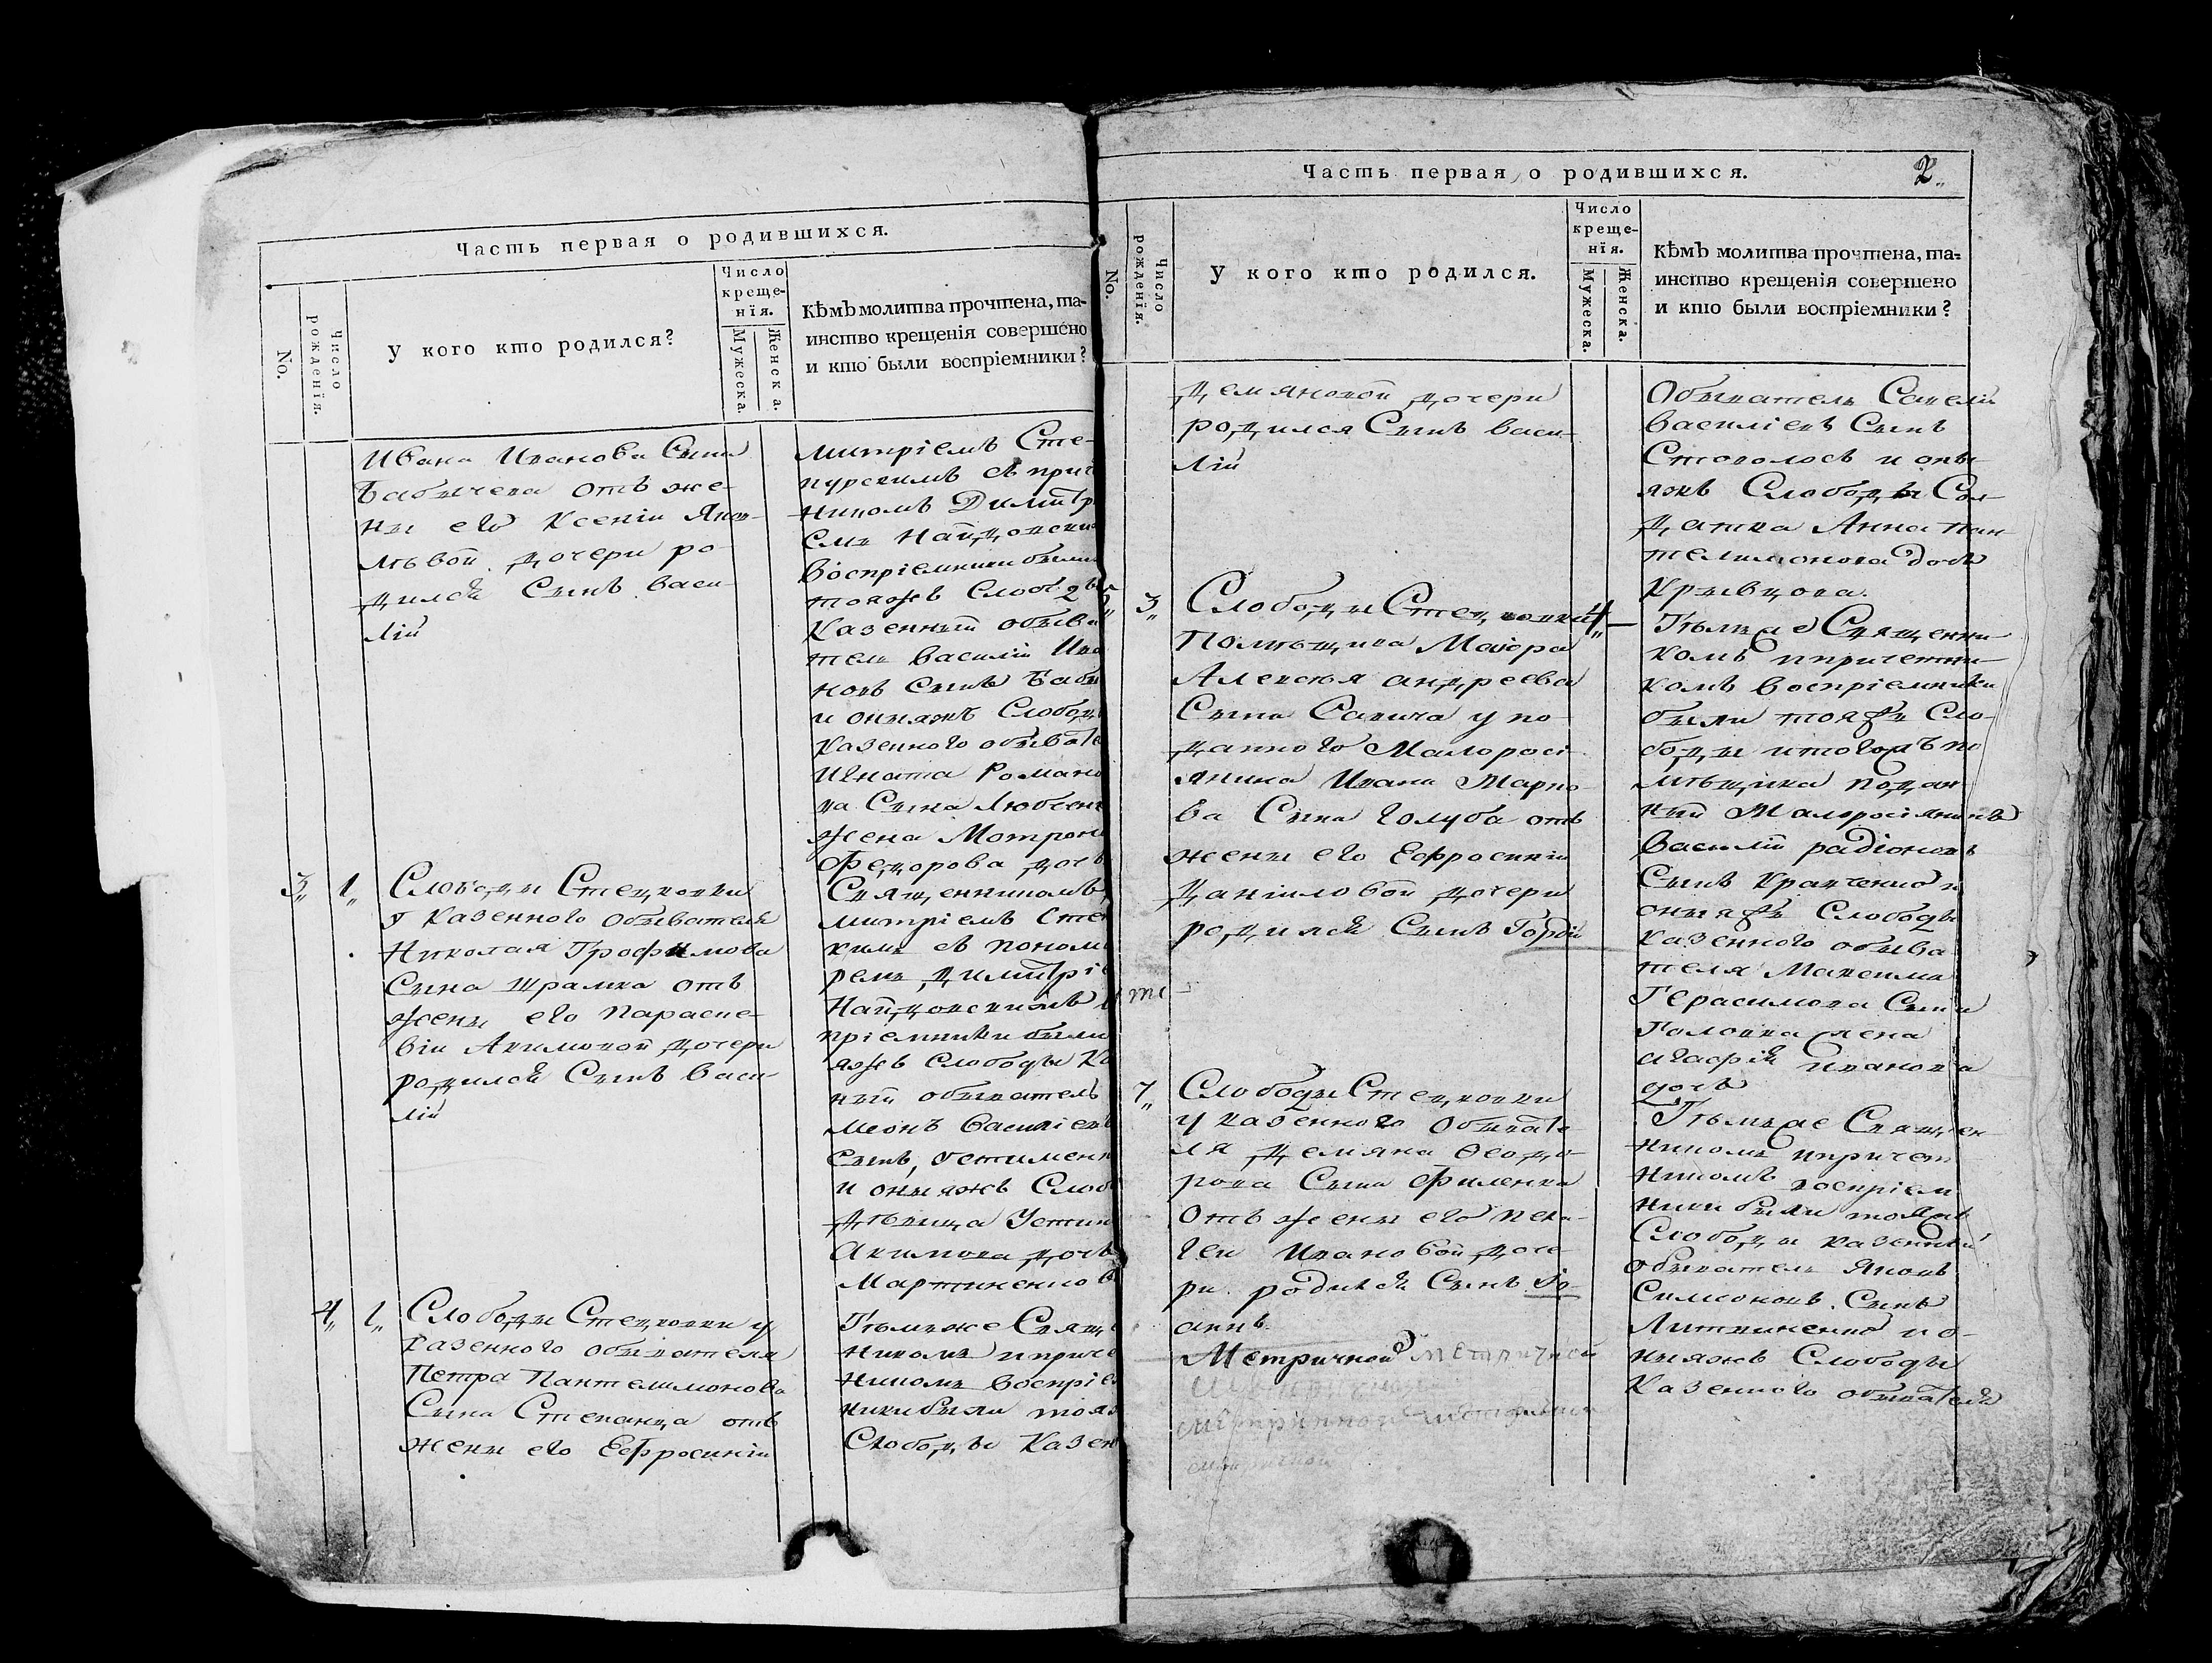 Часть первая о родившихся.
No.
Число рожденія.
У кого кто родился?
Число
креще-
нія.
Мужеска.
Женска.
Кѣмъ молитва прочтена, та-
инство крещенія совершено
и кто были воспріемники?
Ивана Иванова Сына
Бабичева отъ же-
ны его Ксеніи Яков-
лѣвой дочери ро-
дился Сынъ Васи-
лій
митріемъ Сте-
пурскимъ съ прич
никомъ Димитр
емъ Найдовски
Воспріемники были
тояжъ Слобо
Казенный обыва
тель Василій Ива
новъ Сынъ Баби
и оныяжъ Слобод
Казенного обывате
Игната Романо
ва Сына Любчен
жена Мотрона
Федорова дочь
3„ 1„
Слободы Стецковки
у Казенного обывателя
Николая Трофимова
Сына Шрамка отъ
жены его Параске-
віи Акимовой дочери
родился Сынъ Васи-
лій
Священникомъ
митріемъ Сте
кимъ съ поном
ремъ Димитрі
Найдовскимъ
пріемники были
яжъ Слободы Ка
ный обыватель
меонъ Василіевъ
Сынъ, Устименк
и оныяжъ Слоб
дѣвица Устин
Акимова дочь
Мартиненкова
4„ 1„
Слободы Стецковки у
Казенного обывателя
Петра Пантелимонова
Сына Степанца отъ
жены его Ефросиніи
Тѣмже Свящ
никомъ и приче
никомъ воспріе
ники были тояж
Слободы Казен
Часть первая о родившихся.
2„
No.
Число рожденія.
У кого кто родился.
Число
креще-
нія.
Мужеска.
Женска.
Кѣмъ молитва прочтена, та-
инство крещенія совершено
и кто были воспріемники?
Демяновой дочери
родился Сынъ Васи-
лій
Обыватель Савелій
Василіевъ Сынъ
Стоволосъ и оны-
яжъ Слободы Сол-
датка Анна Пан-
телимонова дочь
Кривцова.
5„ 3„
Слободы Стецковки
4„
Помѣщика Маіора
Алексѣя Андреева
Сына Савича у по-
данного Малоросі-
янина Ивана Марко-
ва Сына Голуба отъ
жены его Ефросиніи
Даніиловой дочери
родился Сынъ Гордій
Тѣмже Священни-
комъ и причетни-
комъ воспріемники
были тояжъ Сло-
боды и тогожъ по-
мѣщика подан-
ный Малоросіянинъ
Василій Радіоновъ
Сынъ Кравченко и
оныяжъ Слободы
Казенного обыва-
теля Максима
Герасимова Сына
Головка жена
Агафія Иванова
дочь
7„
Слободы Стецковки
у казенного обывате-
ля Демяна Ѳеодо-
рова Сына Филенка
отъ жены его Пела-
геи Ивановой доче-
ри родился Сынъ Іо-
аннъ.
Метричной метричной
Тѣмже Священ-
никомъ и причет-
никомъ воспріем-
ники были тояжъ
Слободы казенный
обыватель Яковъ
Симеоновъ Сынъ
Литвиненко и о-
ныяжъ Слободы
Казенного обывателя